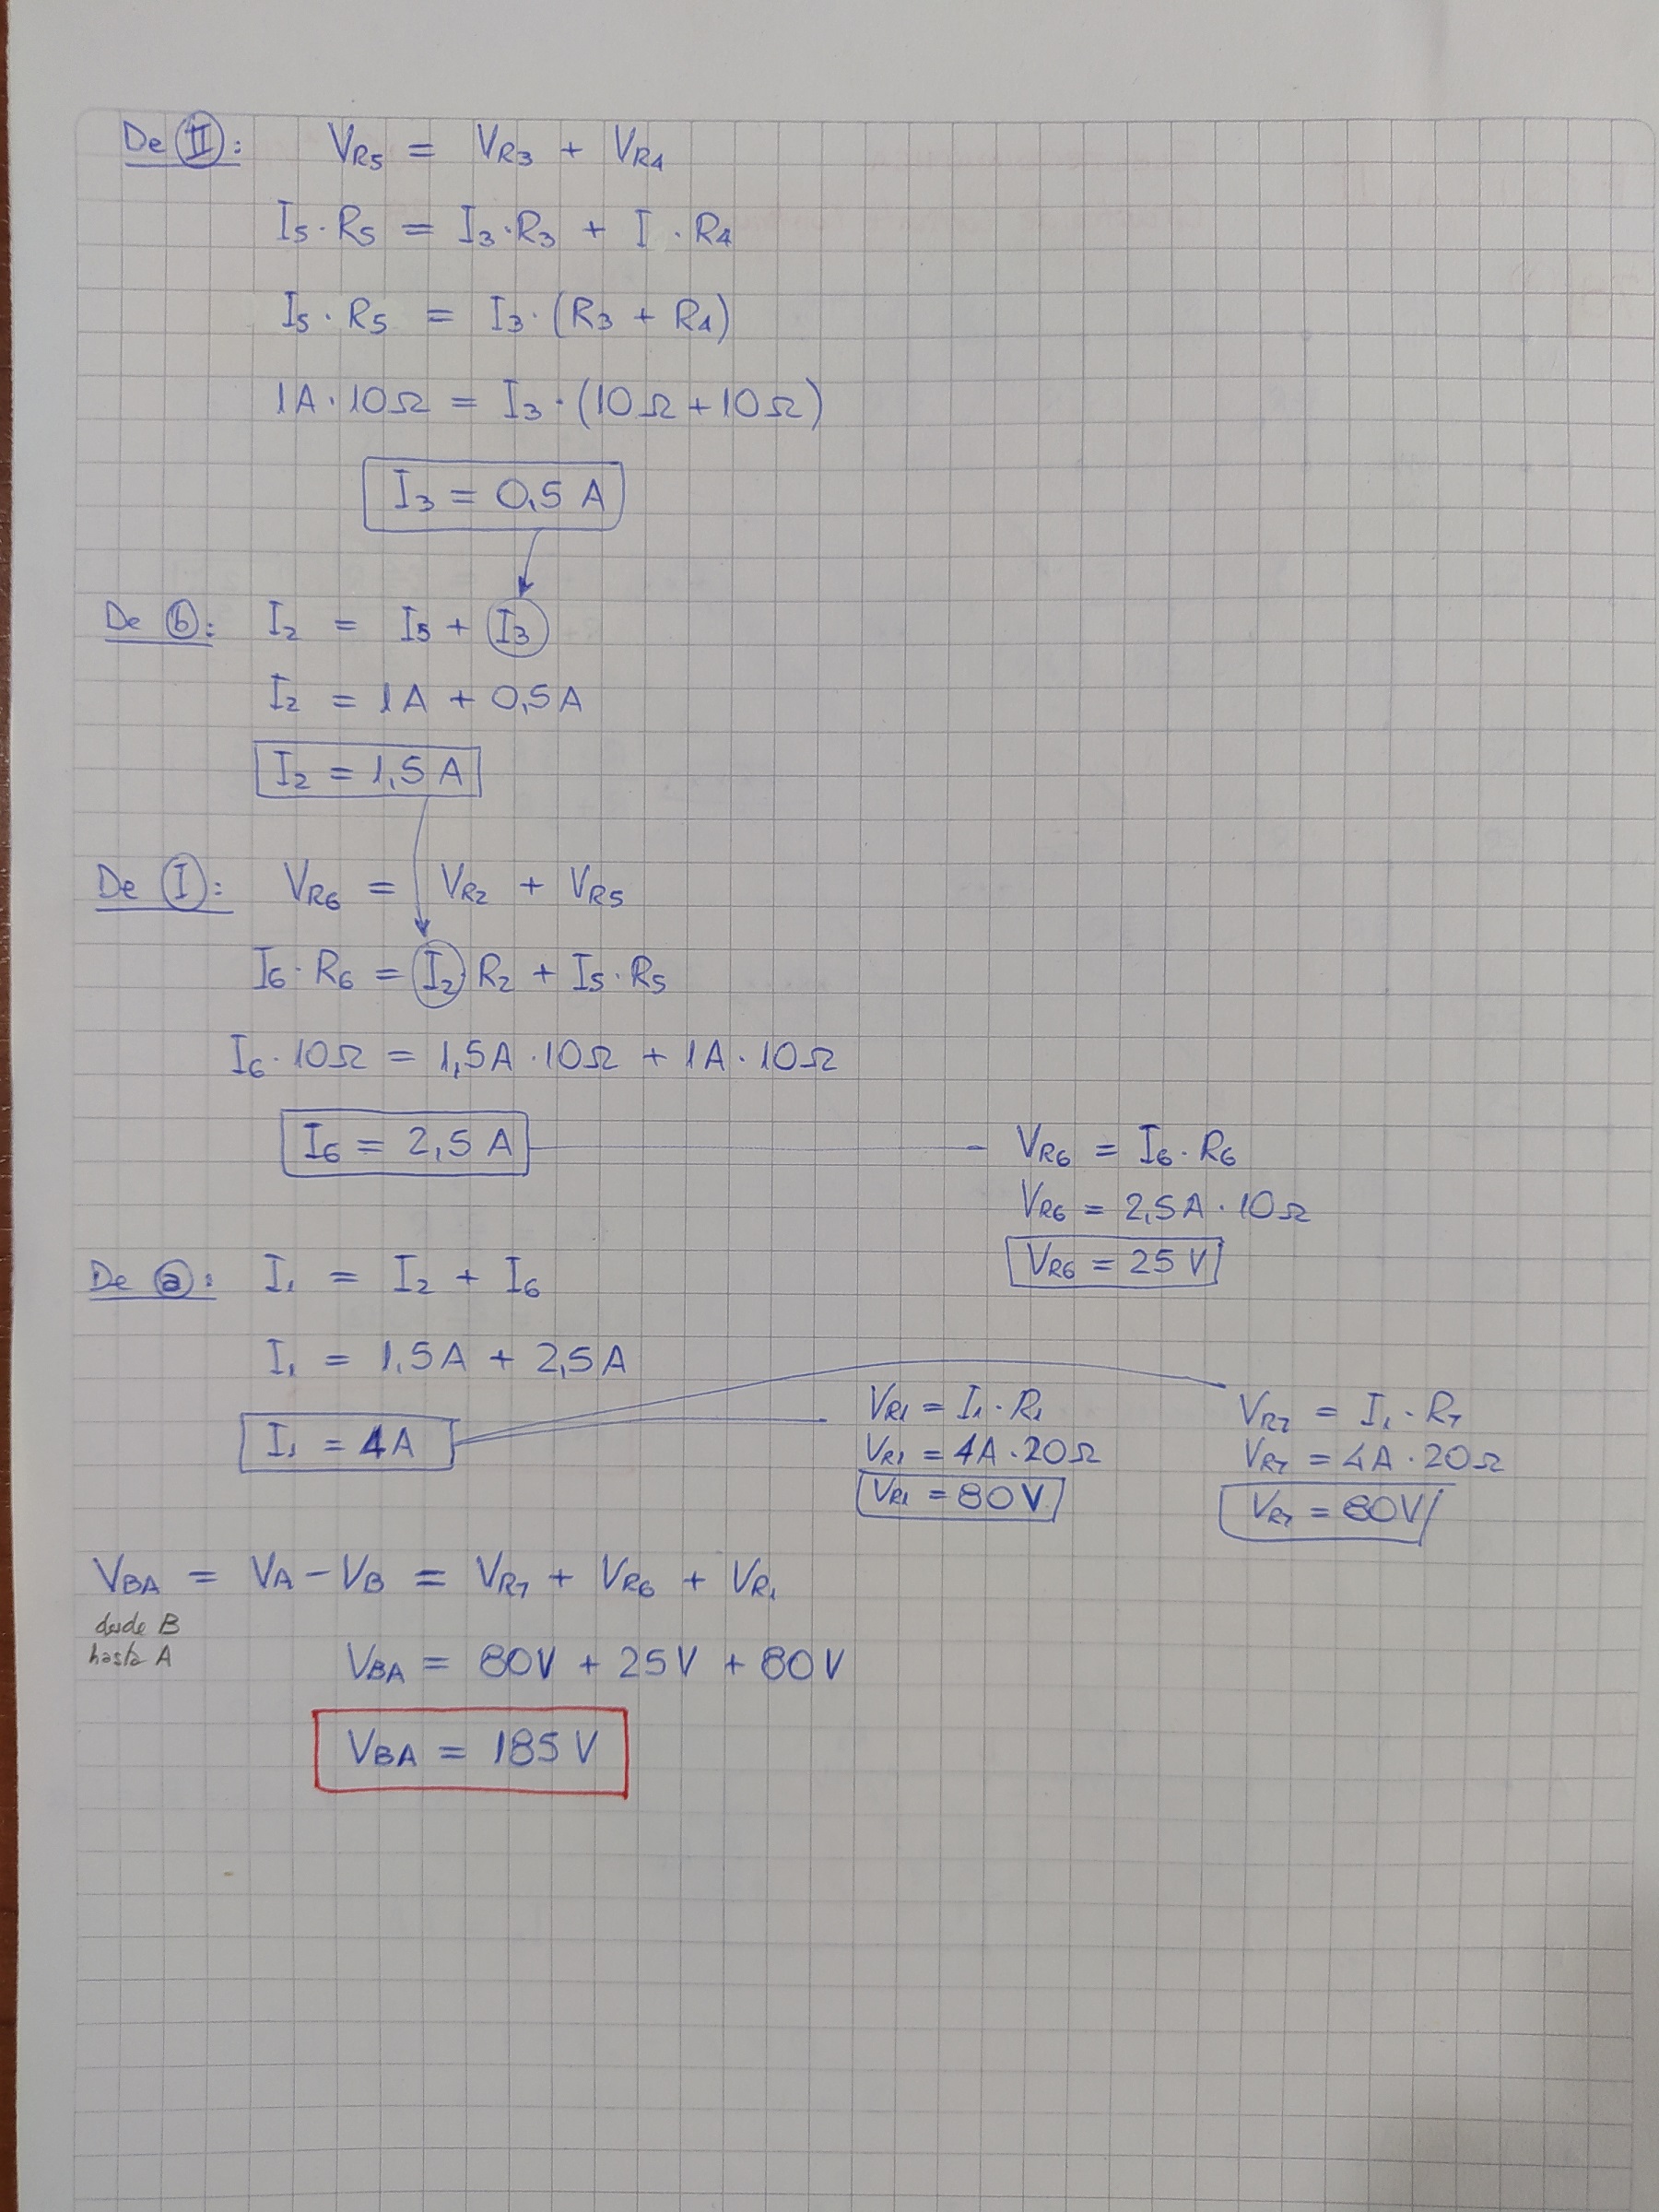 De II: VR5 = VR3 + VR4
I5 · R5 = I3 · R3 + I · R4
I5 · R5 = I3 · (R3 + R4)
1A · 10Ω = I3 · (10Ω + 10Ω)
I3 = 0,5 A
De b: I2 = I5 + I3
I2 = 1A + 0,5A
I2 = 1,5 A
De I: VR6 = VR2 + VR5
I6 · R6 = I2 R2 + I5 · R5
I6 · 10Ω = 1,5A · 10Ω + 1A · 10Ω
I6 = 2,5 A
VR6 = I6 · R6
VR6 = 2,5A · 10Ω
VR6 = 25 V
De a: I1 = I2 + I6
I1 = 1,5A + 2,5A
I1 = 4A
VR1 = I1 · R1
VR1 = 4A · 20Ω
VR1 = 80V
VR7 = I1 · R7
VR7 = 4A · 20Ω
VR7 = 80V
VBA = VA - VB = VR7 + VR6 + VR1
desde B
hasta A
VBA = 80V + 25V + 80V
VBA = 185 V